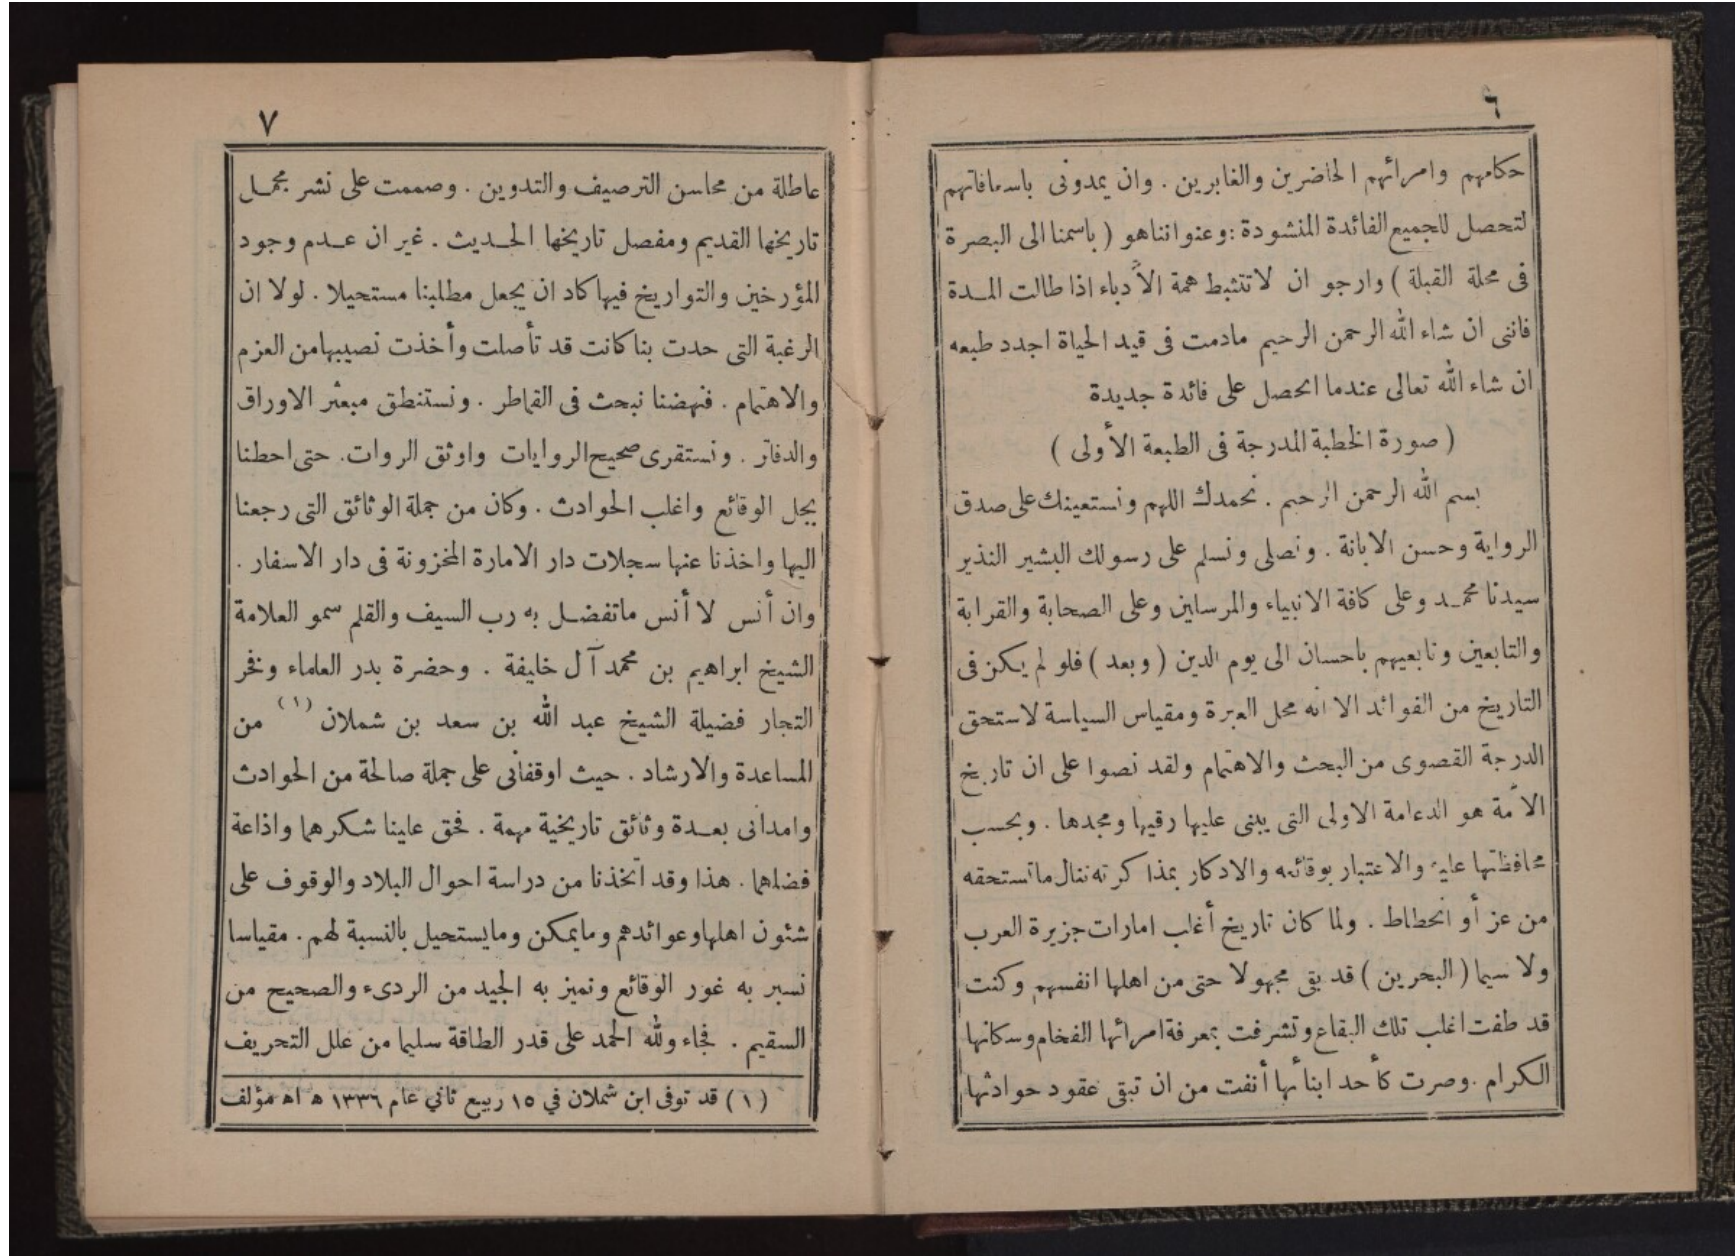 ٦
حكامهم وامرائهم الحاضرين والغابرين . وان يمدونى باسعافاتهم
لتحصل للجميع الفائدة المنشودة : وعنواننا هو ( باسمنا الى البصرة
فى محلة القبلة ) وارجو ان لا تتثبط همة الأدباء اذا طالت المدة
فاننى ان شاء الله الرحمن الرحيم مادمت فى قيد الحياة اجدد طبعه
ان شاء الله تعالى عندما احصل على فائدة جديدة
( صورة الخطبة المدرجة فى الطبعة الأولى )
بسم الله الرحمن الرحيم . نحمدك اللهم ونستعينك على صدق
الرواية وحسن الابانة . ونصلى ونسلم على رسولك البشير النذير
سيدنا محمد وعلى كافة الانبياء والمرسلين وعلى الصحابة والقرابة
والتابعين وتابعيهم باحسان الى يوم الدين ( وبعد ) فلو لم يكن فى
التاريخ من الفوائد الا انه محل العبرة ومقياس السياسة لاستحق
الدرجة القصوى من البحث والاهتمام ولقد نصوا على ان تاريخ
الامة هو الدعامة الاولى التى يبنى عليها رقيها ومجدها . وبحسب
محافظتها عليه والاعتبار بوقائعه والادكار بمذاكرته تنال ما تستحقه
من عز أو انحطاط . ولما كان تاريخ أغلب امارات جزيرة العرب
ولا سيما ( البحرين ) قد بقى مجهولا حتى من اهلها انفسهم وكنت
قد طفت اغلب تلك البقاع وتشرفت بمعرفة امرائها الفخام وسكانها
الكرام . وصرت كأحد ابنائها أنفت من ان تبقى عقود حوادثها
٧
عاطلة من محاسن الترصيف والتدوين . وصممت على نشر مجمل
تاريخها القديم ومفصل تاريخها الحديث . غير ان عدم وجود
المؤرخين والتواريخ فيها كاد ان يجعل مطلبنا مستحيلا . لولا ان
الرغبة التى حدت بنا كانت قد تأصلت وأخذت نصيبها من العزم
والاهتمام . فنهضنا نبحث فى القماطر . ونستنطق مبعثر الاوراق
والدفاتر . ونستقرى صحيح الروايات واوثق الروات . حتى احطنا
بجل الوقائع واغلب الحوادث . وكان من جملة الوثائق التى رجعنا
اليها واخذنا عنها سجلات دار الامارة المخزونة فى دار الاسفار .
وان أنس لا أنس ماتفضل به رب السيف والقلم سمو العلامة
الشيخ ابراهيم بن محمد آل خليفة . وحضرة بدر العلماء وفخر
التجار فضيلة الشيخ عبد الله بن سعد بن شملان (١) من
المساعدة والارشاد . حيث اوقفانى على جملة صالحة من الحوادث
وامدانى بعدة وثائق تاريخية مهمة . فحق علينا شكرهما واذاعة
فضلهما . هذا وقد اتخذنا من دراسة احوال البلاد والوقوف على
شئون اهلها وعوائدهم ومايمكن ومايستحيل بالنسبة لهم . مقياسا
نسبر به غور الوقائع ونميز به الجيد من الردىء والصحيح من
السقيم . فجاء ولله الحمد على قدر الطاقة سليما من علل التحريف
(١) قد توفى ابن شملان في ١٥ ربيع ثاني عام ١٣٣٦ ه اه مؤلف